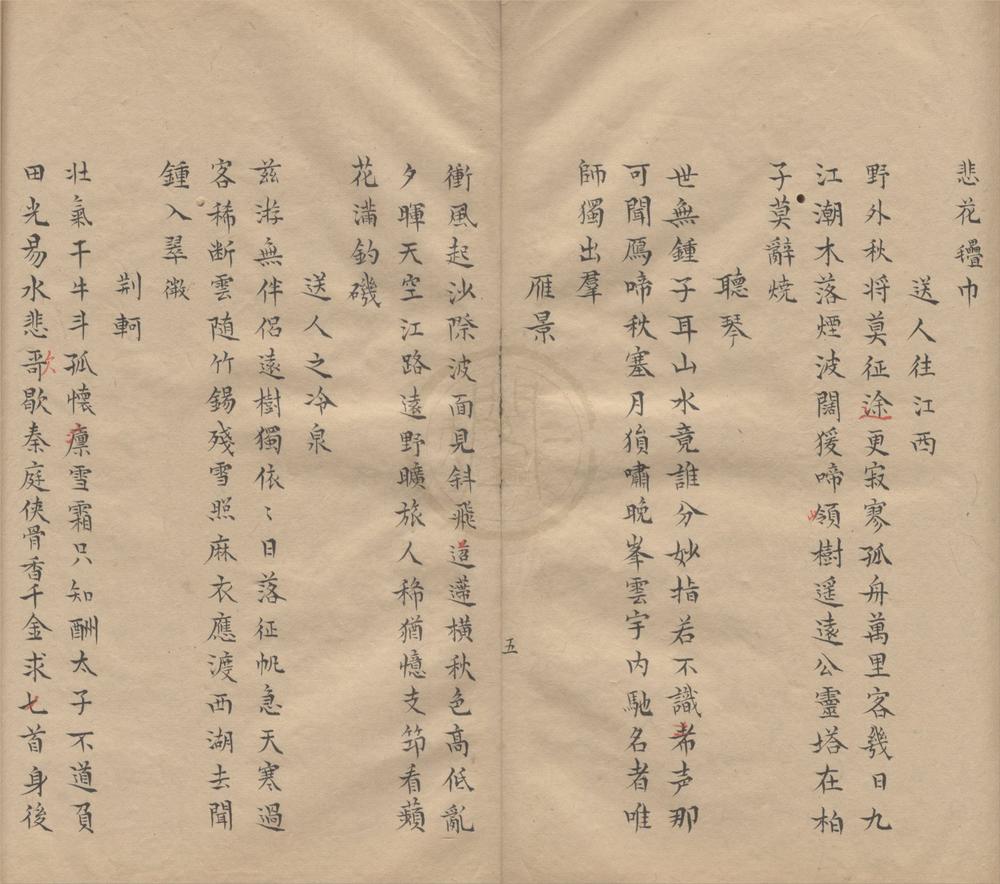 悲花疊巾
送人往江西
野外秋将莫征途更寂寥孤舟萬里客幾日九
江潮木落煙波闊猨啼領樹遥遠公靈塔在柏
子莫辭燒
聽琴
世無鍾子耳山水竟誰分妙指若不識希声那
可聞鴈啼秋塞月猿嘯晚峯雲宇内馳名者唯
師獨出羣
雁景
衝風起沙際波面見斜飛迢遰橫秋色高低亂
夕暉天空江路遠野曠旅人稀猶憶支笻看蘋
花滿釣磯
送人之冷泉
兹游無伴侶遠樹獨依〻日落征帆急天寒過
客稀断雲随竹錫殘雪照麻衣應渡西湖去聞
鍾入翠微
荆軻
壮氣干牛斗孤懷凛雪霜只知酬太子不道負
田光易水悲歌歇秦庭侠骨香千金求匕首身後
五